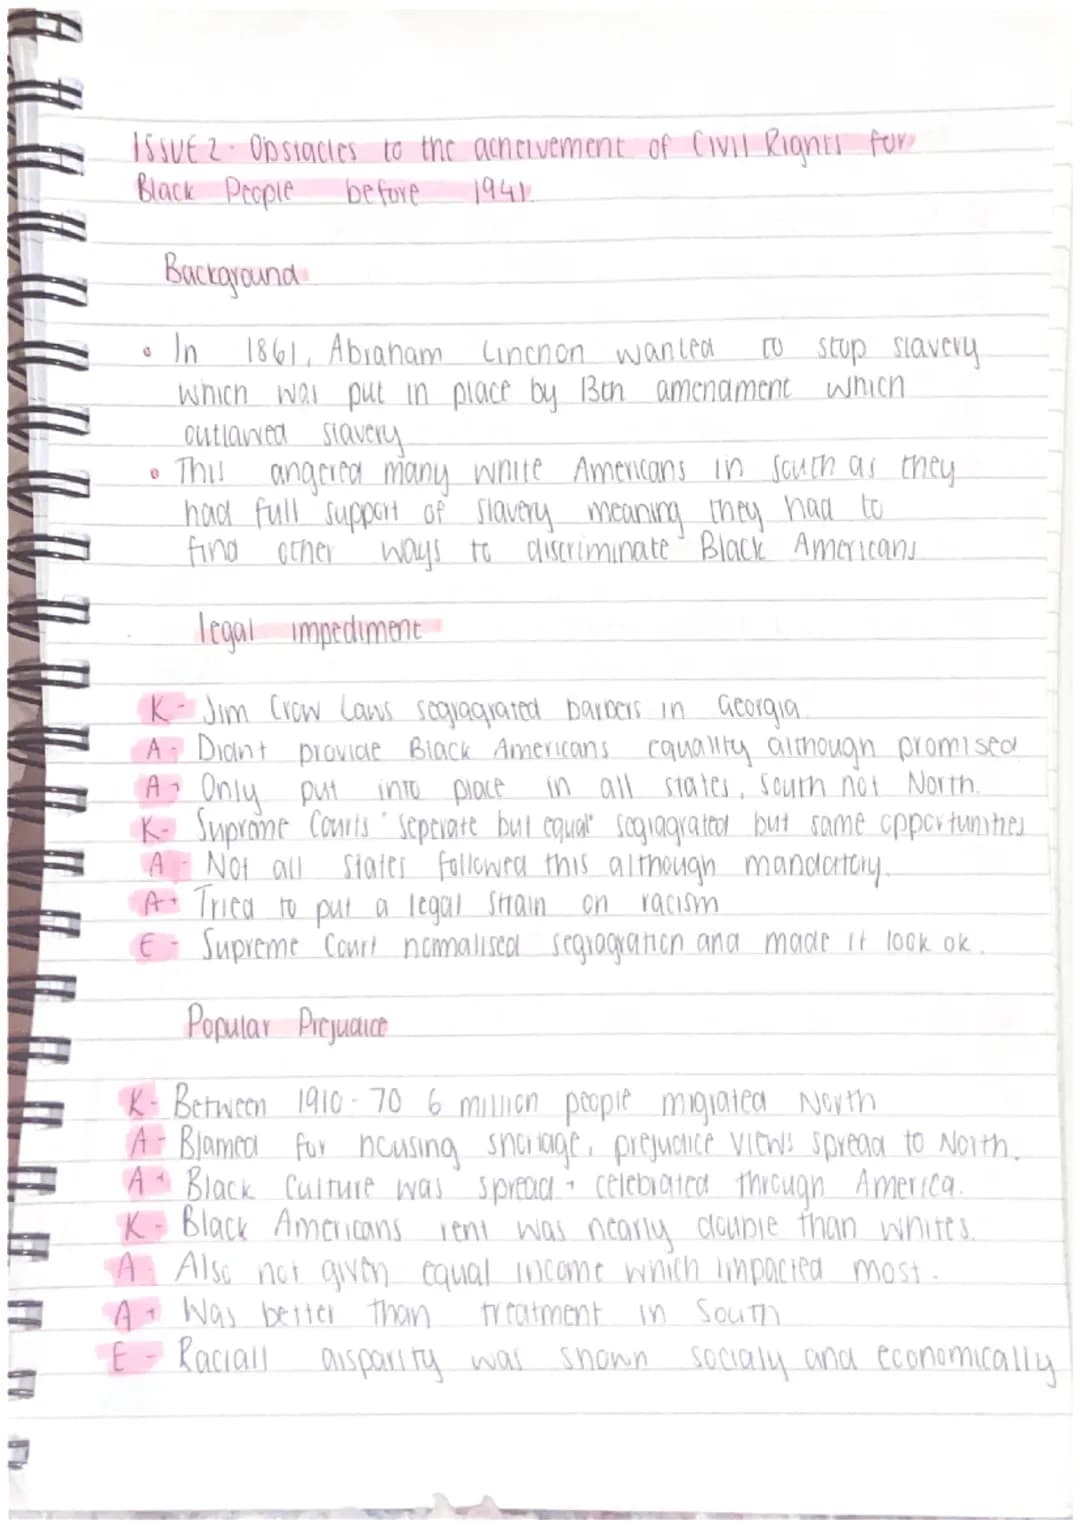 ISSUE 2 - Obstacles to the acheivement of Civil Rights for
Black People before 1941.
Background
• In 1861, Abraham Linchon wanted to stop slavery
which was put in place by 13th amendment which
outlawed slavery
• This angered many white Americans in south as they
had full support of slavery meaning they had to
find other ways to discriminate Black Americans
legal impediment
K - Jim Crow Laws segragrated barbers in Georgia.
A - Didnt provide Black Americans equality although promised
A + Only put into place in all states, South not North.
K - Supreme Courts 'seperate but equal' segragrated but same opportunities
A - Not all states followed this although mandortory.
A + Tried to put a legal strain on racism
E - Supreme Court normalised segragration and made it look ok.
Popular Prejudice
K - Between 1910 - 70 6 million people migrated North
A - Blamed for housing shortage, prejudice views spread to North.
A + Black Culture was spread + celebrated through America.
K - Black Americans rent was nearly double than whites.
A - Also not given equal income which impacted most.
A + Was better than treatment in South
E - Raciall disparity was shown socialy and economically